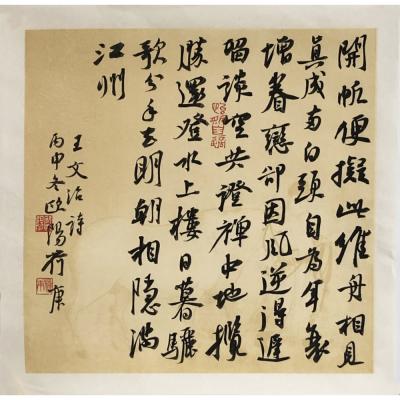 開帆便擬此維舟相見
真成兩白頭自為年衰
增眷戀卻因風逆得遲
留談空共證禪中地攬
勝還登水上樓日暮驪
歌分手去明朝相憶滿
江州
王文治詩
丙申冬歐陽荷庚